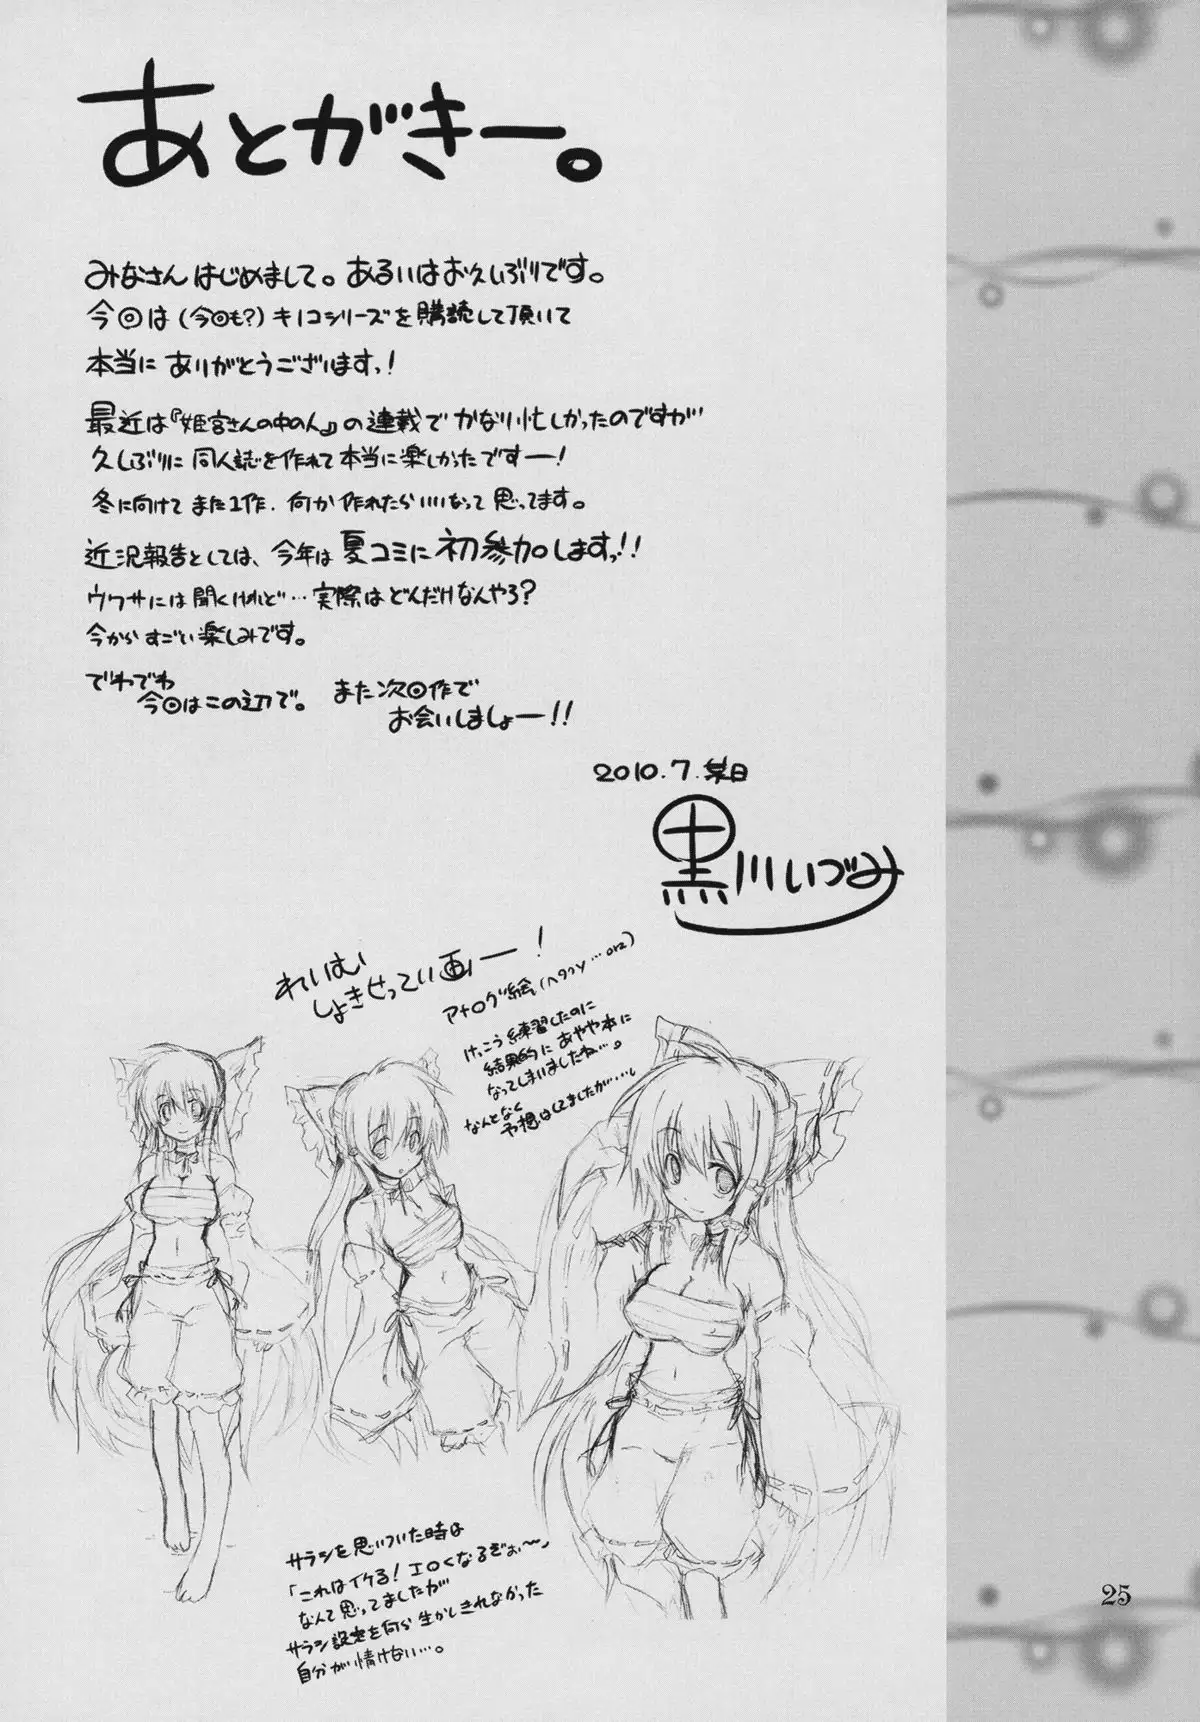 あとがきー。
みなさん はじめまして。あるいはお久しぶりです。
今回は(今回も?)キノコシリーズを購読して頂いて
本当に ありがとうございますっ!
最近は『姫宮さんの中の人』の連載で かなり忙しかったのですが
久しぶりに 同人誌を作れて本当に楽しかったですー!
冬に向けて また1作、何か作れたらいいなって思ってます。
近況報告としては、今年は夏コミに初参加しますっ!!
ウワサには聞くけれど…実際はどんだけなんやろ?
今からすごい楽しみです。
でわでわ
今回はこの辺で。 また次回作で
お会いしましょー!!
2010.7.某日
黒川いづみ
れいむい
しょきせってい画ー!
アナログ絵(ヘタクソ…orz)
けっこう練習したのに
結果的にあやや本に
なってしまいましたね…。
なんとなく
予想はしてましたが……
サラシを思いついた時は
「これはイケる!エロくなるぞぉ〜」
なんて思ってましたが
サラシ設定を何ら生かしきれなかった
自分が情けない…。
25